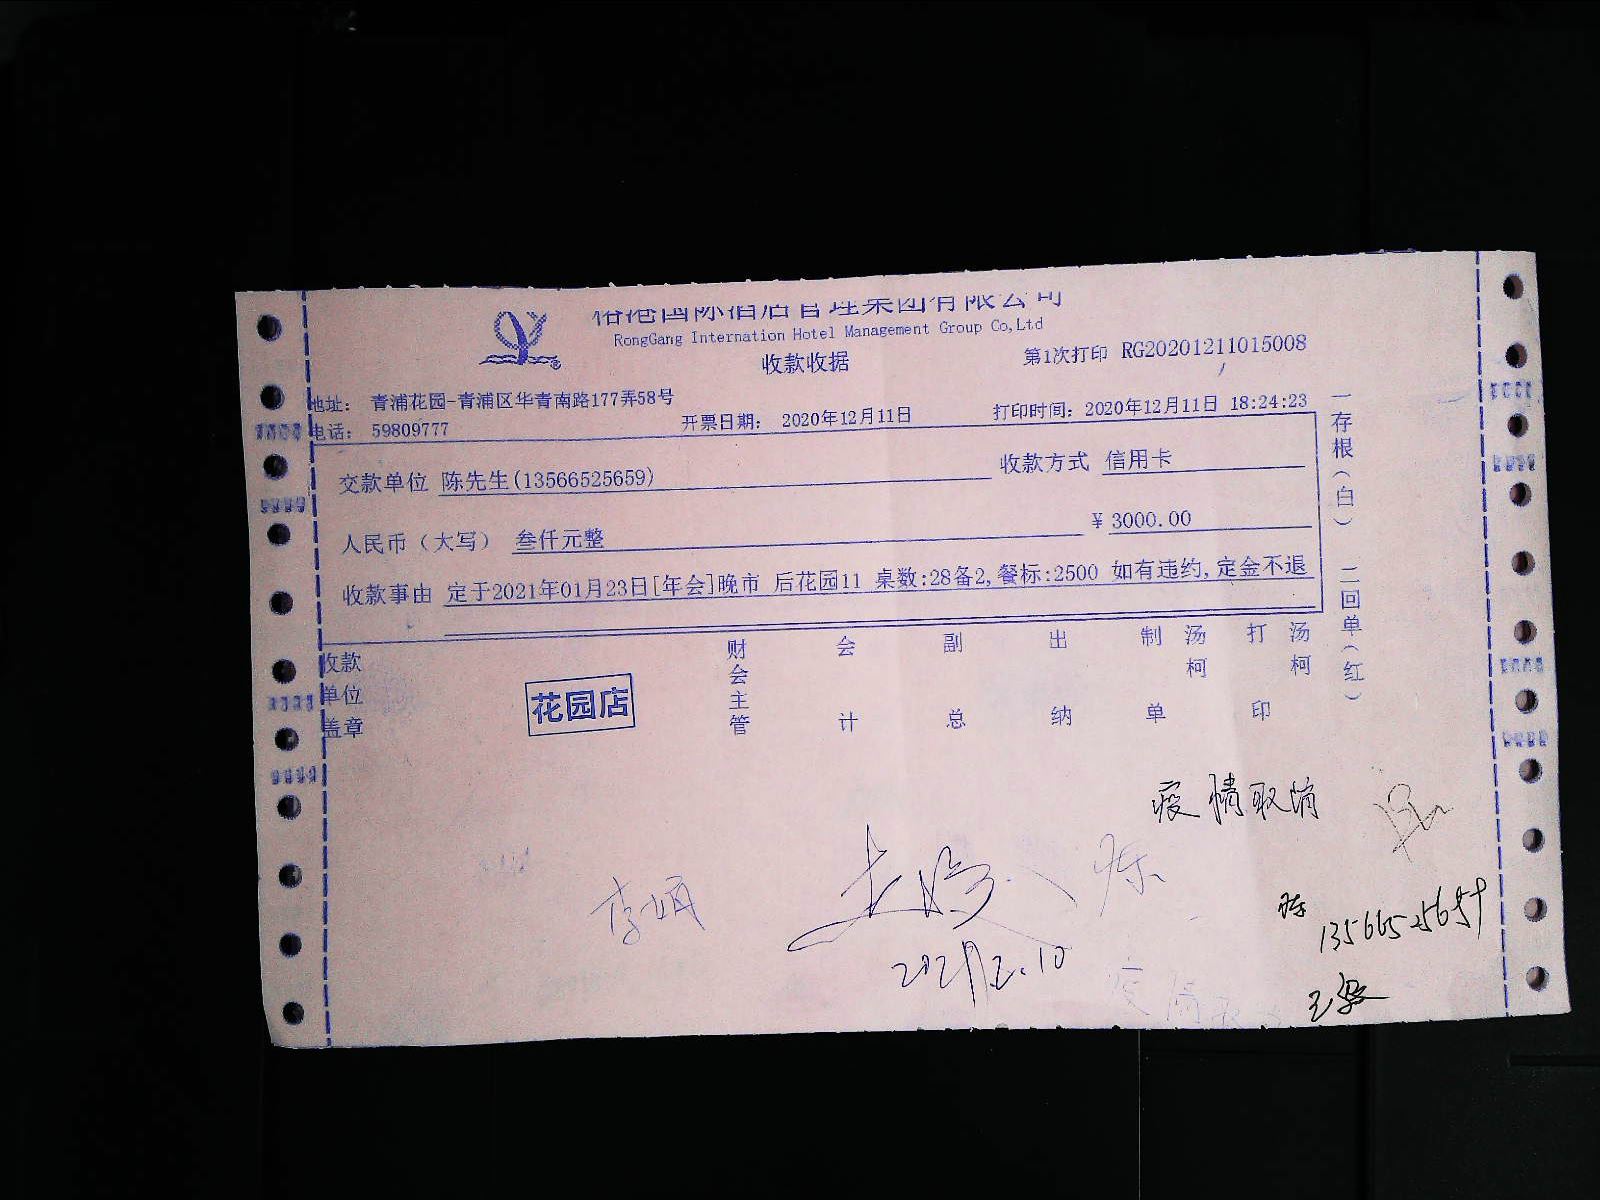 国际酒店管理集团有限公司
RongGang Internation Hotel Management Group Co,Ltd
收款收据
第1次打印 RG20201211015008
地址: 青浦花园-青浦区华青南路177弄58号
电话: 59809777
开票日期: 2020年12月11日
打印时间: 2020年12月11日 18:24:23
交款单位 陈先生(13566525659)
收款方式 信用卡
人民币（大写） 叁仟元整
¥ 3000.00
收款事由 定于2021年01月23日[年会]晚市 后花园11 桌数:28备2,餐标:2500 如有违约,定金不退
一存根（白） 二回单（红）
收款单位盖章
花园店
财会主管
会计
副总
出纳
制单
汤柯
打印
汤柯
疫情取消
陈
陈
13566525659